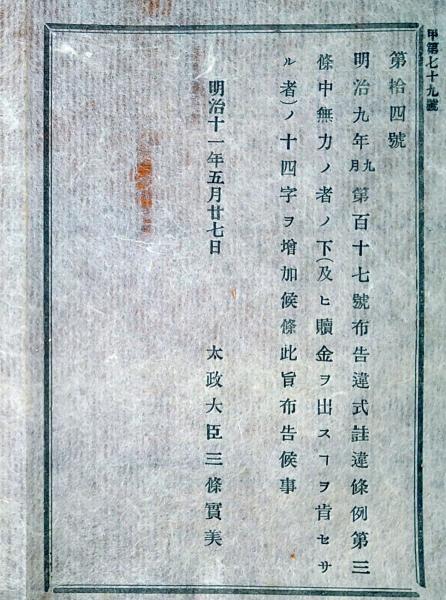 甲第七十九號
第拾四號
明治九年九月第百十七號布告違式詿違條例第三
條中無力ノ者ノ下(及ヒ贖金ヲ出スヿヲ肯セサ
ル者)ノ十四字ヲ增加候條此旨布告候事
明治十一年五月廿七日
太政大臣三條實美